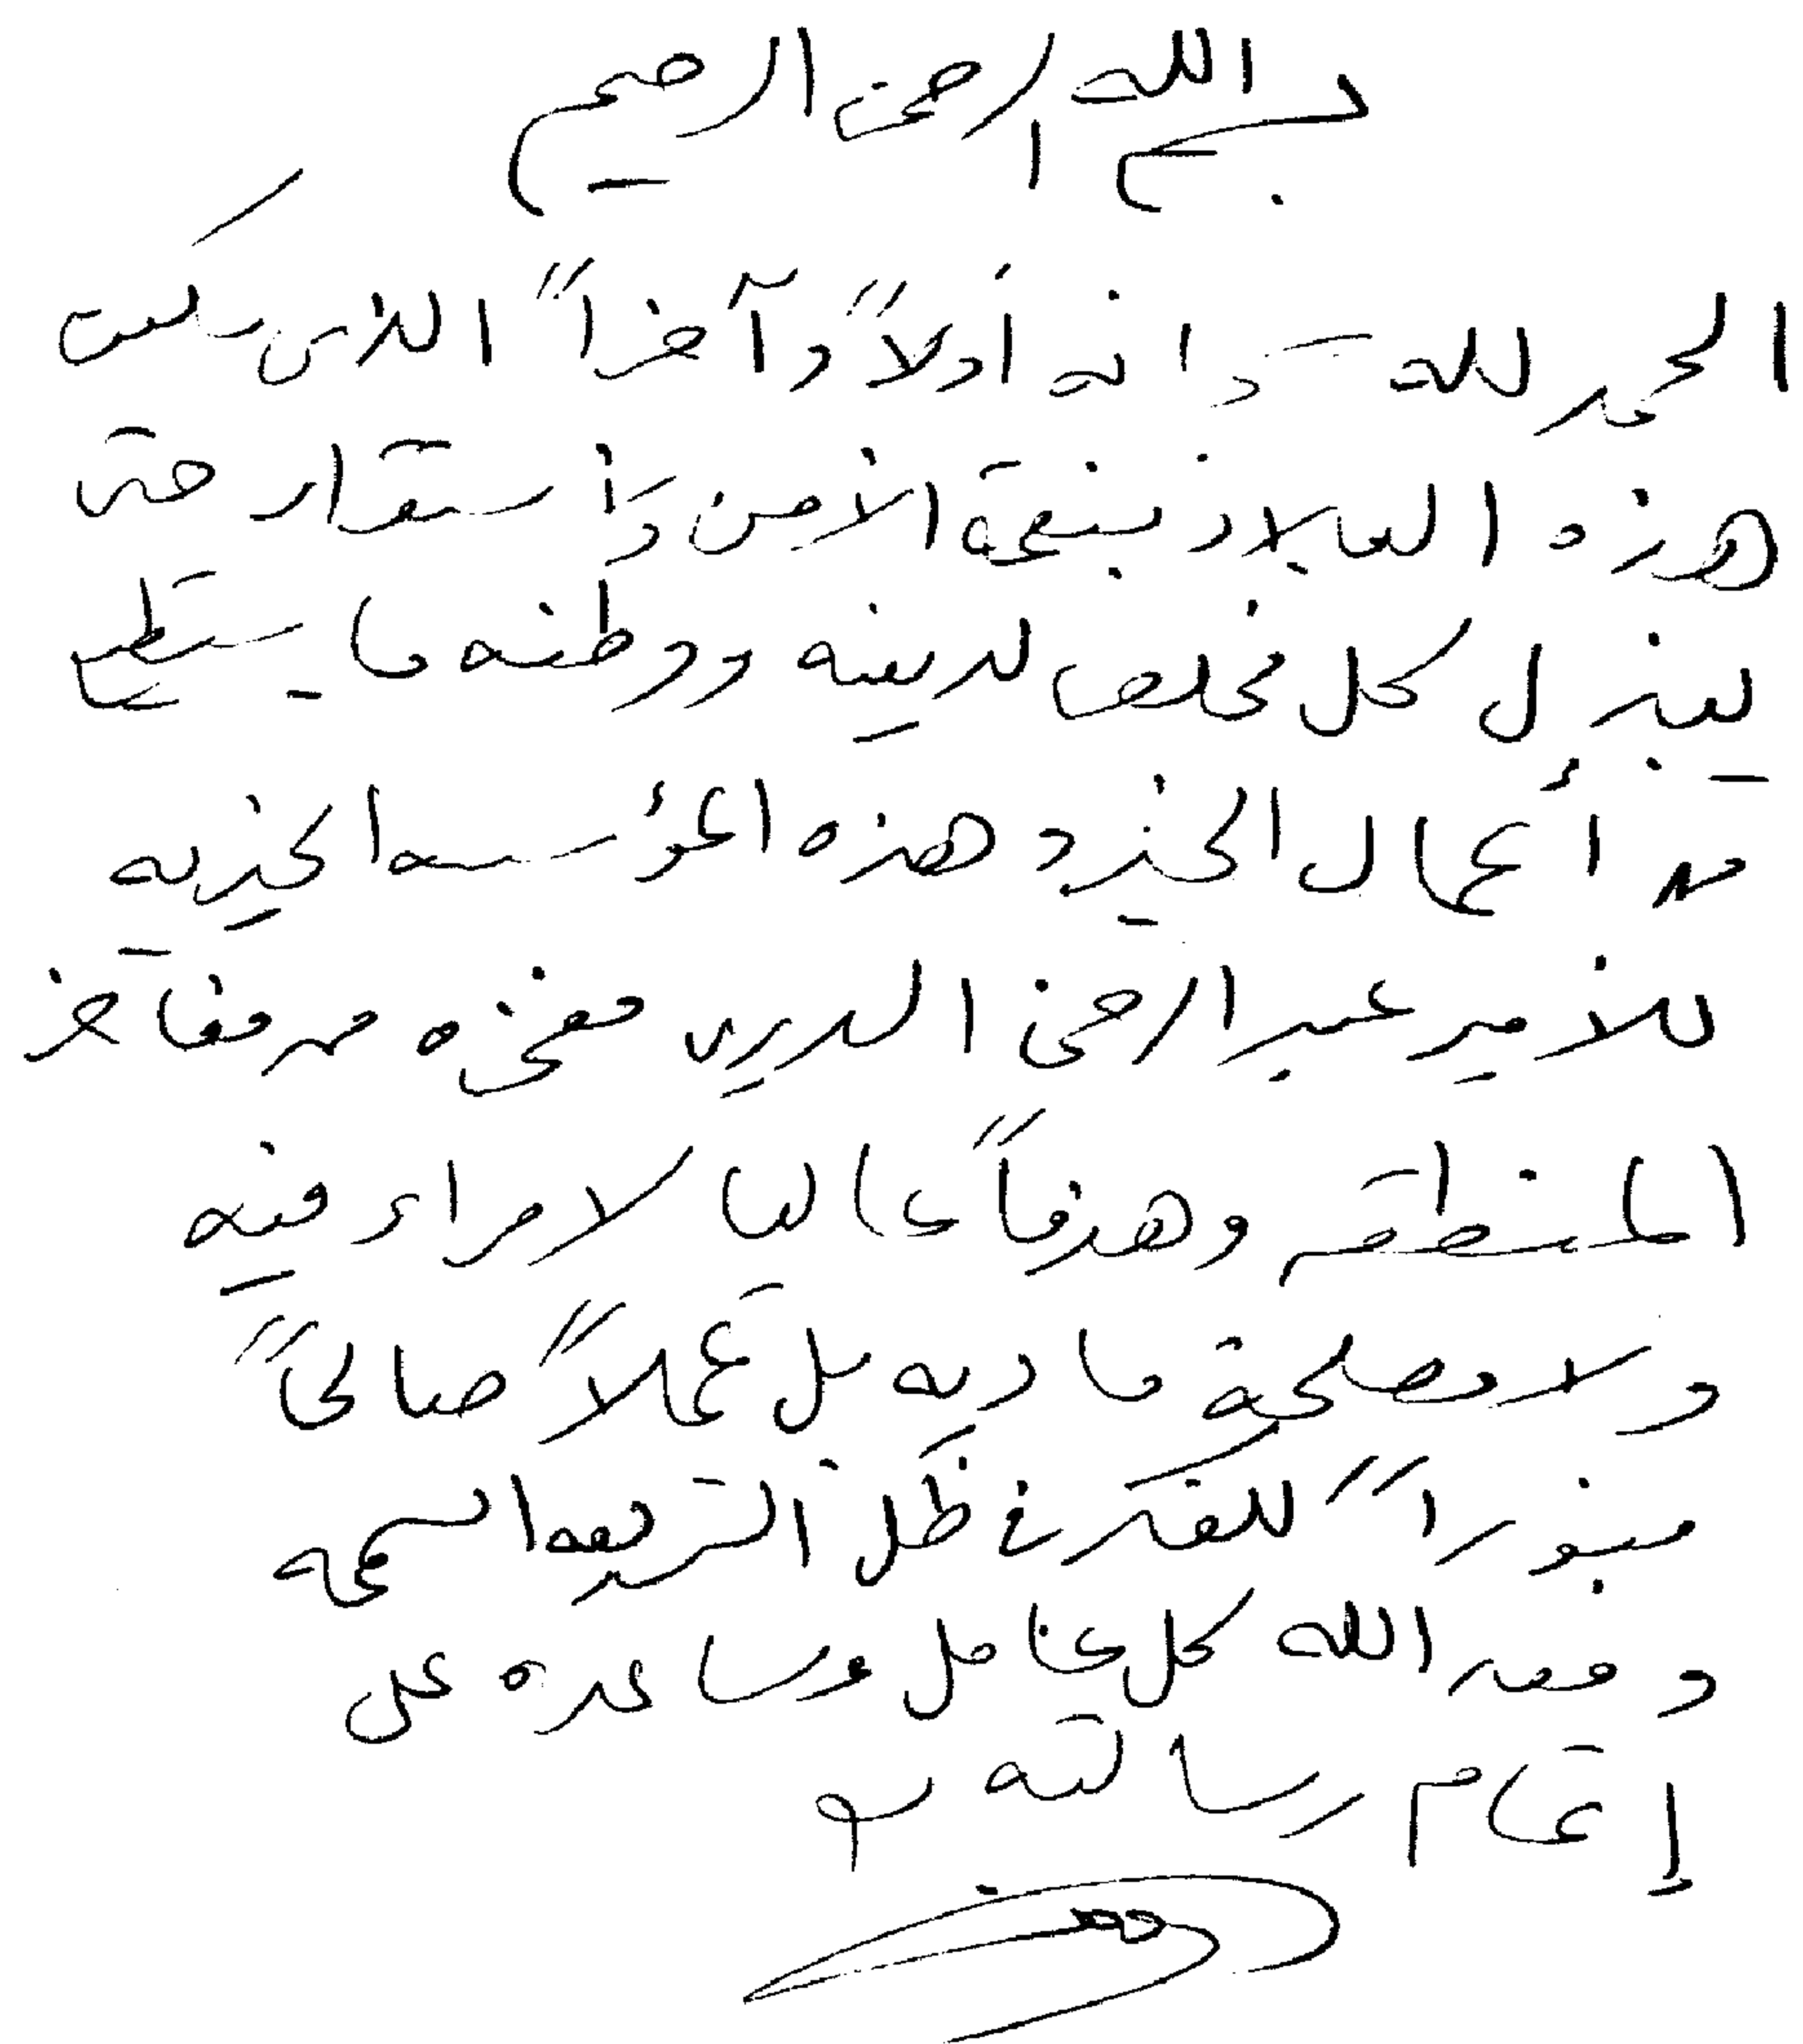 بسم الله الرحمن الرحيم
الحمد لله سبحانه أولاً وآخراً الذى
هذه البلاد بنعمة الأمن والاستقرار حتى
يبذل كل مخلص لدينه ووطنه ما يستطيع
من أعمال الخير وهذه المؤسسه الخيريه
للأمير عبد الرحمن السديرى مفخره من مفاخر
المنطقه وهدفاً عاليا لا مراء فيه
ولا مصلحة ماديه بل عملاً صالحاً
للفقر في ظل الشريعه السمحه
وفق الله كل عامل وساعده على
إتمام رسالته